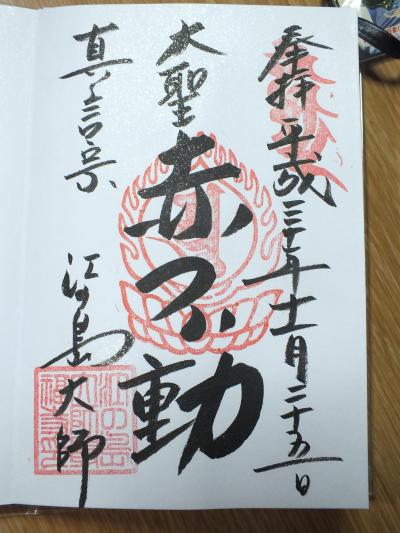 奉拝 平成三十年十一月二十五日
大聖 赤不動
真言宗 江の島大師